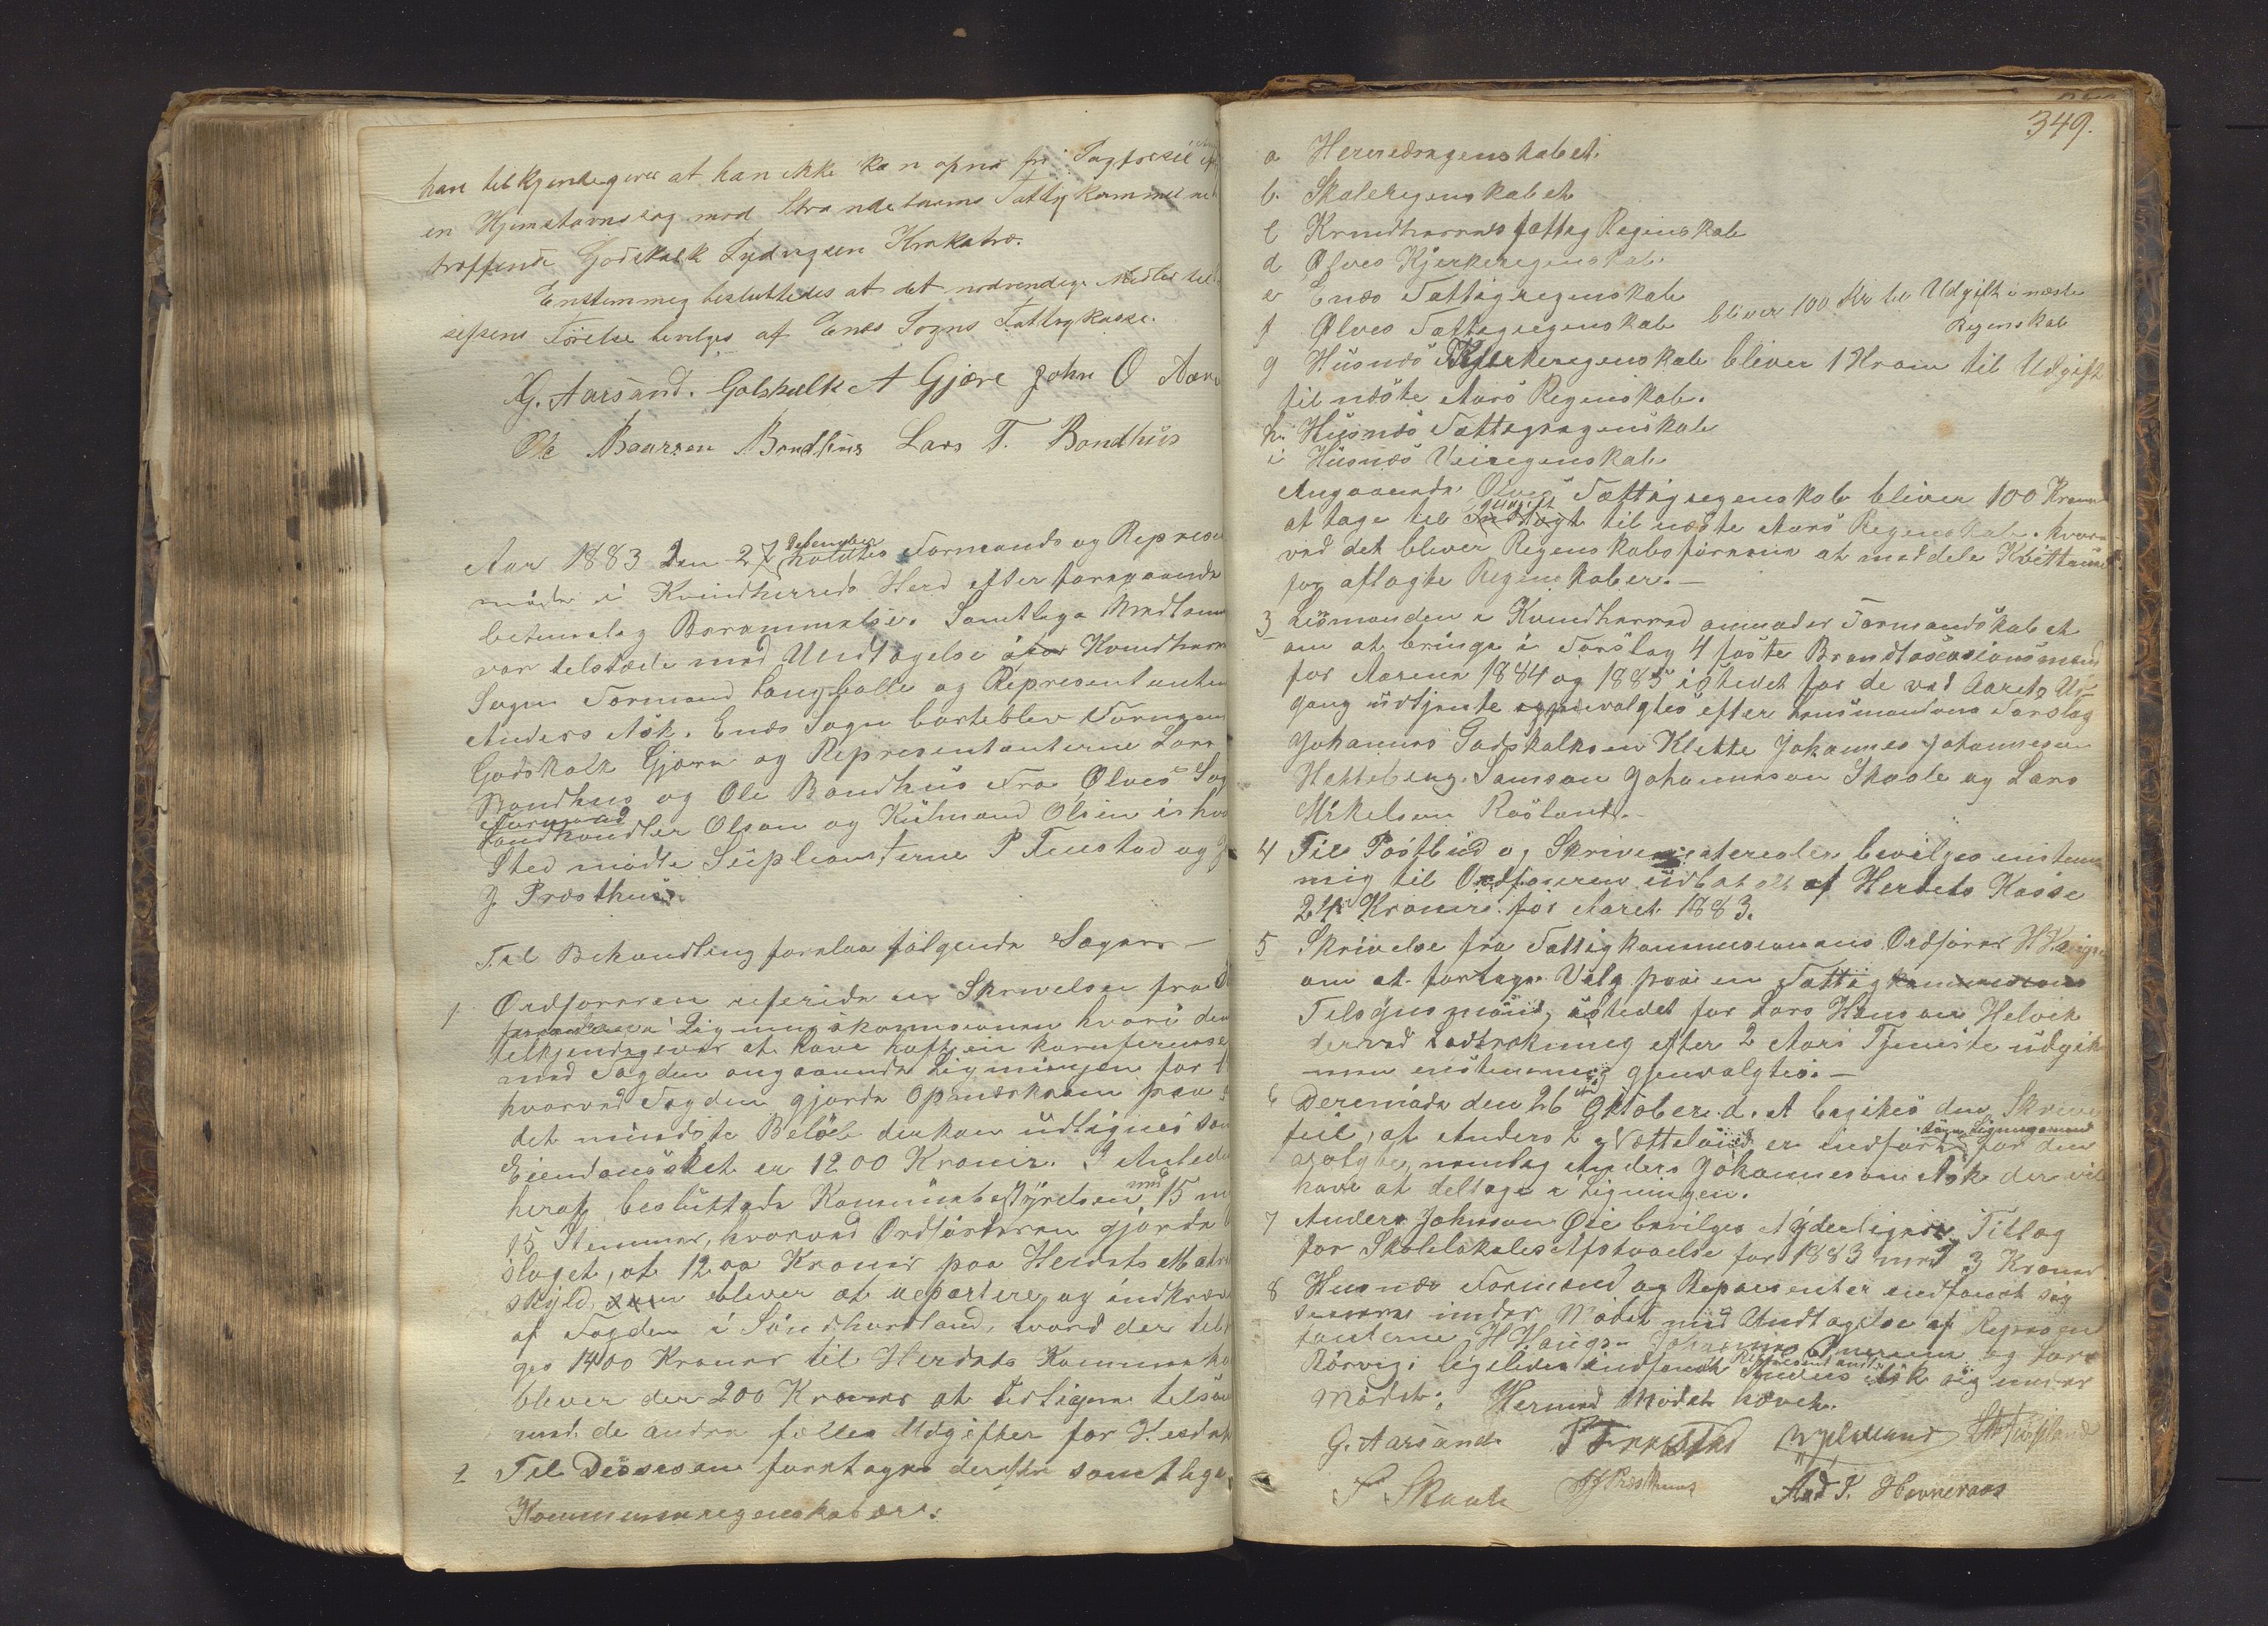 han tilkjendegiver at han ikke kan opnå fri Sagførsel
en Hjemstavnssag mod Strandebarms Fattigkommune
træffende Godskalk Ludvigsen Krakatræ.
Enstemmig besluttedes at det nødvendige Midler til
Førelse bevilges af Enæs Sogns Fattigkasse.
G. Aarsand. Gotskalk A Gjære John O
Ole Baarsen Bondhus Lars T. Bondhus
Aar 1883 Den 27 Desember holdtes Formands og Represen
møde i Kvindherreds Herd efter foregaaende
betimelig Berammelse. Samtlige Medlem
var tilstæde med Undtagelse af Kvindherr
Sogn Formand Langballe og Representanten
Anders Ask. Enæs Sogn borteblev Formand
Godskalk Gjøre og Representanterne Lars
Bondhus og Ole Bondhus Fra Ølves Sog
Formand
Landhandler Olsen og Kulmand Olsen is hvo
Sted mødte Suplianterne P Tveestad og J
J. Præsthus.
Til Behandling forelaa følgende Sager —
1 Ordføreren referide en Skrivelse fra O
Ligningskommisionen hvori den
telkjendegiver at have haft en konference
med Fogden angaaende Ligningen for
hvorved Fogden gjorde Opmærksom paa
det mindste Beløb der kan udlignes som
Eiendomsskat er 1200 Kroner. I Anled
heraf besluttede Kommunebestyrelsen med 15 m
15 Stemmer, hvorved Ordføreren gjorde
slaget, at 1200 Kroner paa Herdets Matri
skyld, bliver at repartere og indkræv
af Fogden i Søndhordland, hvoraf der till
ges 1400 Kroner til Herdets Kommuneka
bliver der 200 Kroner at udligne tilsam
med de andre fælles Udgifter for Herdet
2 Til Desision foretages derefter samtlige
Kommuneregenskabere:
349.
a Herredsregenskabet.
b. Skoleregenskabet
c Kvindherreds fattig Regenskab
d Ølves Kjerkeregenskab
e Enæs Fattigregenskab
f Ølves Fattigregenskab bliver 100 Kr til Udgift i næste
Regenskab
g Husnæs Kjerkeregenskab bliver 1 Krone til Udgift
til næste Aars Regenskab.
h. Husnæs Fattigregenskab
i Husnæs Veiregenskab
Angaaende Ølves Fattigregenskab bliver 100 Kroner
at tage til Udgift Indtægt til næste Aars Regenskab. hvor
ved det bliver Regenskabsføreren at meddele Kvittering
for aflagte Regenskaber. —
3 Lensmanden i Kvindherred anmoder Formandskabet
om at bringe i Forslag 4 faste Brandtaxasionsmænd
for Aarene 1884 og 1885 istedet for de ved Aarets Ud-
gang udtjente gjenvalgtes efter Lensmandens Forslag
Johannes Godskalksen Klette Johannes Johannesen
Hatteberg. Samson Johannesen Skaale og Lars
Mikelsen Røsland. —
4 Til Postbud og Skrivematerialer bevilges enstem
mig til Ordføreren udbetalt af Herdets Kasse
24 Kroner for Aaret 1883.
5 Skrivelse fra Fattigkommisionens Ordfører H Haugen
om at fortage Valg paa en Fattigkommisions
Tilsynsmænd, istedet for Lars Hansen Helvik
der ved Lodtrækning efter 2 Aars Tjeneste udgik
men enstemmig gjenvalgtes. —
6 Deremøde den 26 Oktober d. A begikes den Skrive
feil, at Anders L. Vætteland er indført sogne Ligningsmand for den
valgte, nemlig Anders Johannesen Ask der vil
have at deltage i Ligningen.
7 Anders Johnson Øie bevilges Yderligere Tillæg
for Skolelokales Afstaaelse for 1883 med 3 Kroner
8 Husnæs Formand og Representer indfandt sig
senere under Mødet med Undtagelse af Represen
tanterne H Haugen Johannes Amersen og Lars
Rørvig: ligeledes indfandt Representant Anders Ask sig under
Mødet. Hermed Mødet hævet.
G. Aarsand P Tveestad
F Skaale J J Præsthuus And J. Hovneraas